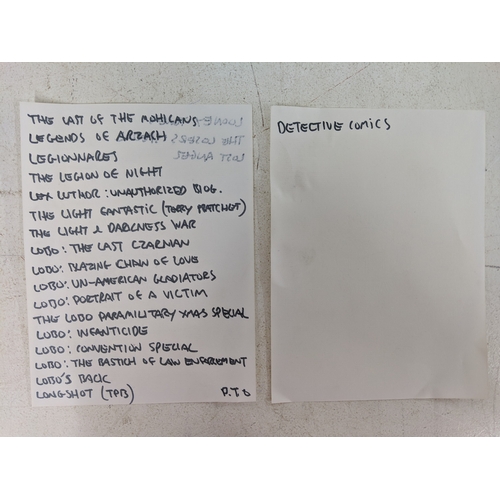 THE LAST OF THE MOHICANS
LEGENDS OF ARZACH
LEGIONNARES
THE LEGION OF NIGHT
LEX LUTHOR: UNAUTHORIZED BIOG.
THE LIGHT FANTASTIC (TERRY PRATCHET)
THE LIGHT & DARKNESS WAR
LOBO: THE LAST CZARNIAN
LOBO: BLAZING CHAIN OF LOVE
LOBO: UN-AMERICAN GLADIATORS
LOBO: PORTRAIT OF A VICTIM
THE LOBO PARAMILITARY XMAS SPECIAL
LOBO: INFANTICIDE
LOBO: CONVENTION SPECIAL
LOBO: THE BASTICH OF LAW ENFORCEMENT
LOBO'S BACK
LONGSHOT (TPB)
P.T.O
DETECTIVE COMICS